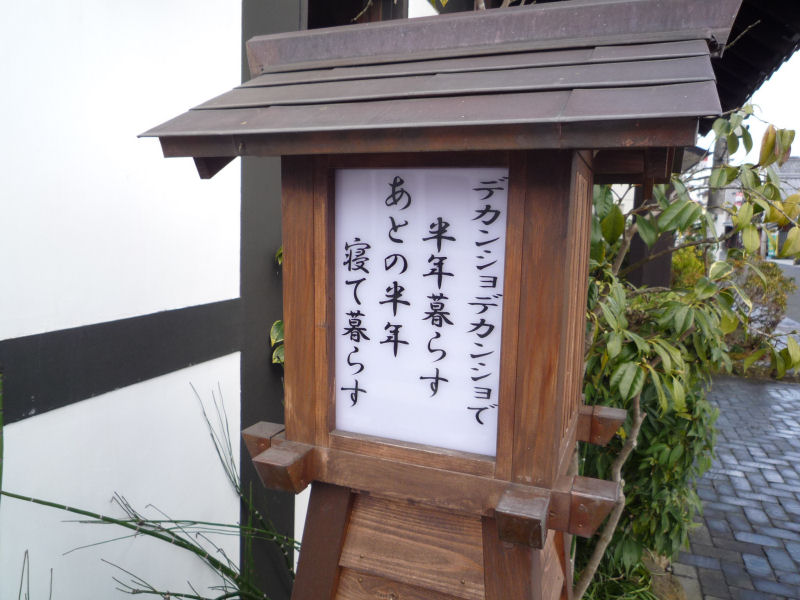 デカンショデカンショで
半年暮らす
あとの半年
寝て暮らす